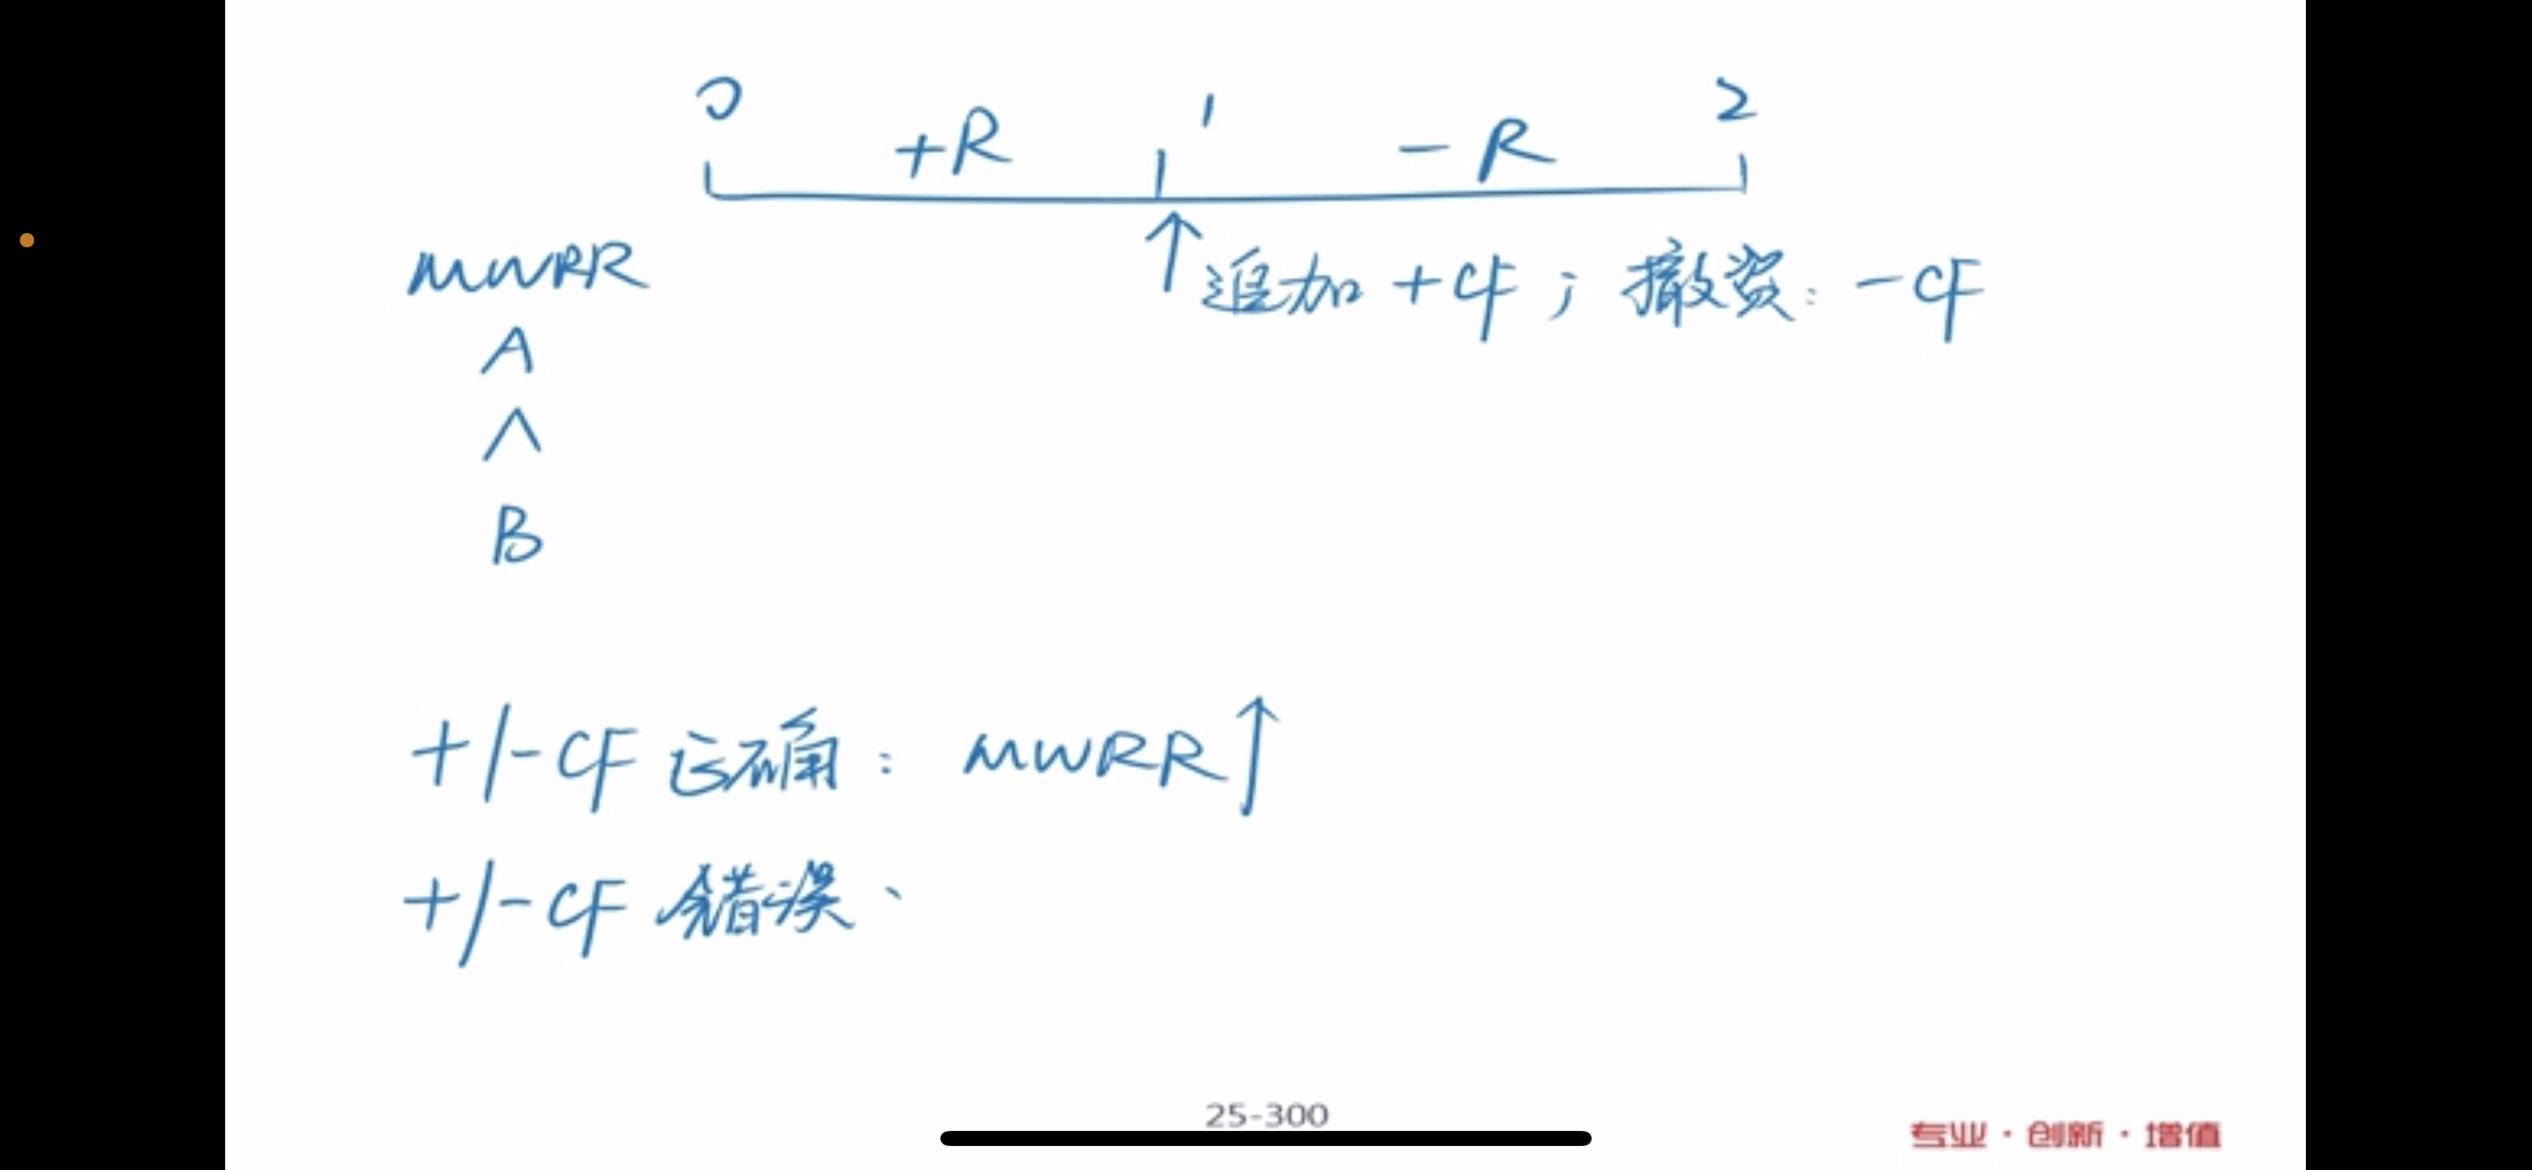 0 1 2
+R -R
MWRR
追加 +CF；撤资：-CF
A
^
B
+/-CF 正确：MWRR↑
+/-CF 错误、
25-300
专业·创新·增值